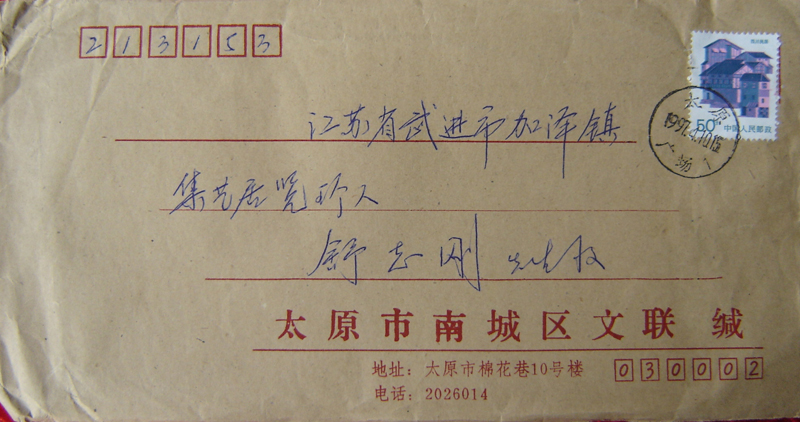 213153
50 中国人民邮政
太原
1997.4.10.15
江苏省武进市加泽镇
集艺居览珍人
舒志刚 先生收
太原市南城区文联 缄
地址：太原市棉花巷10号楼 030002
电话：2026014